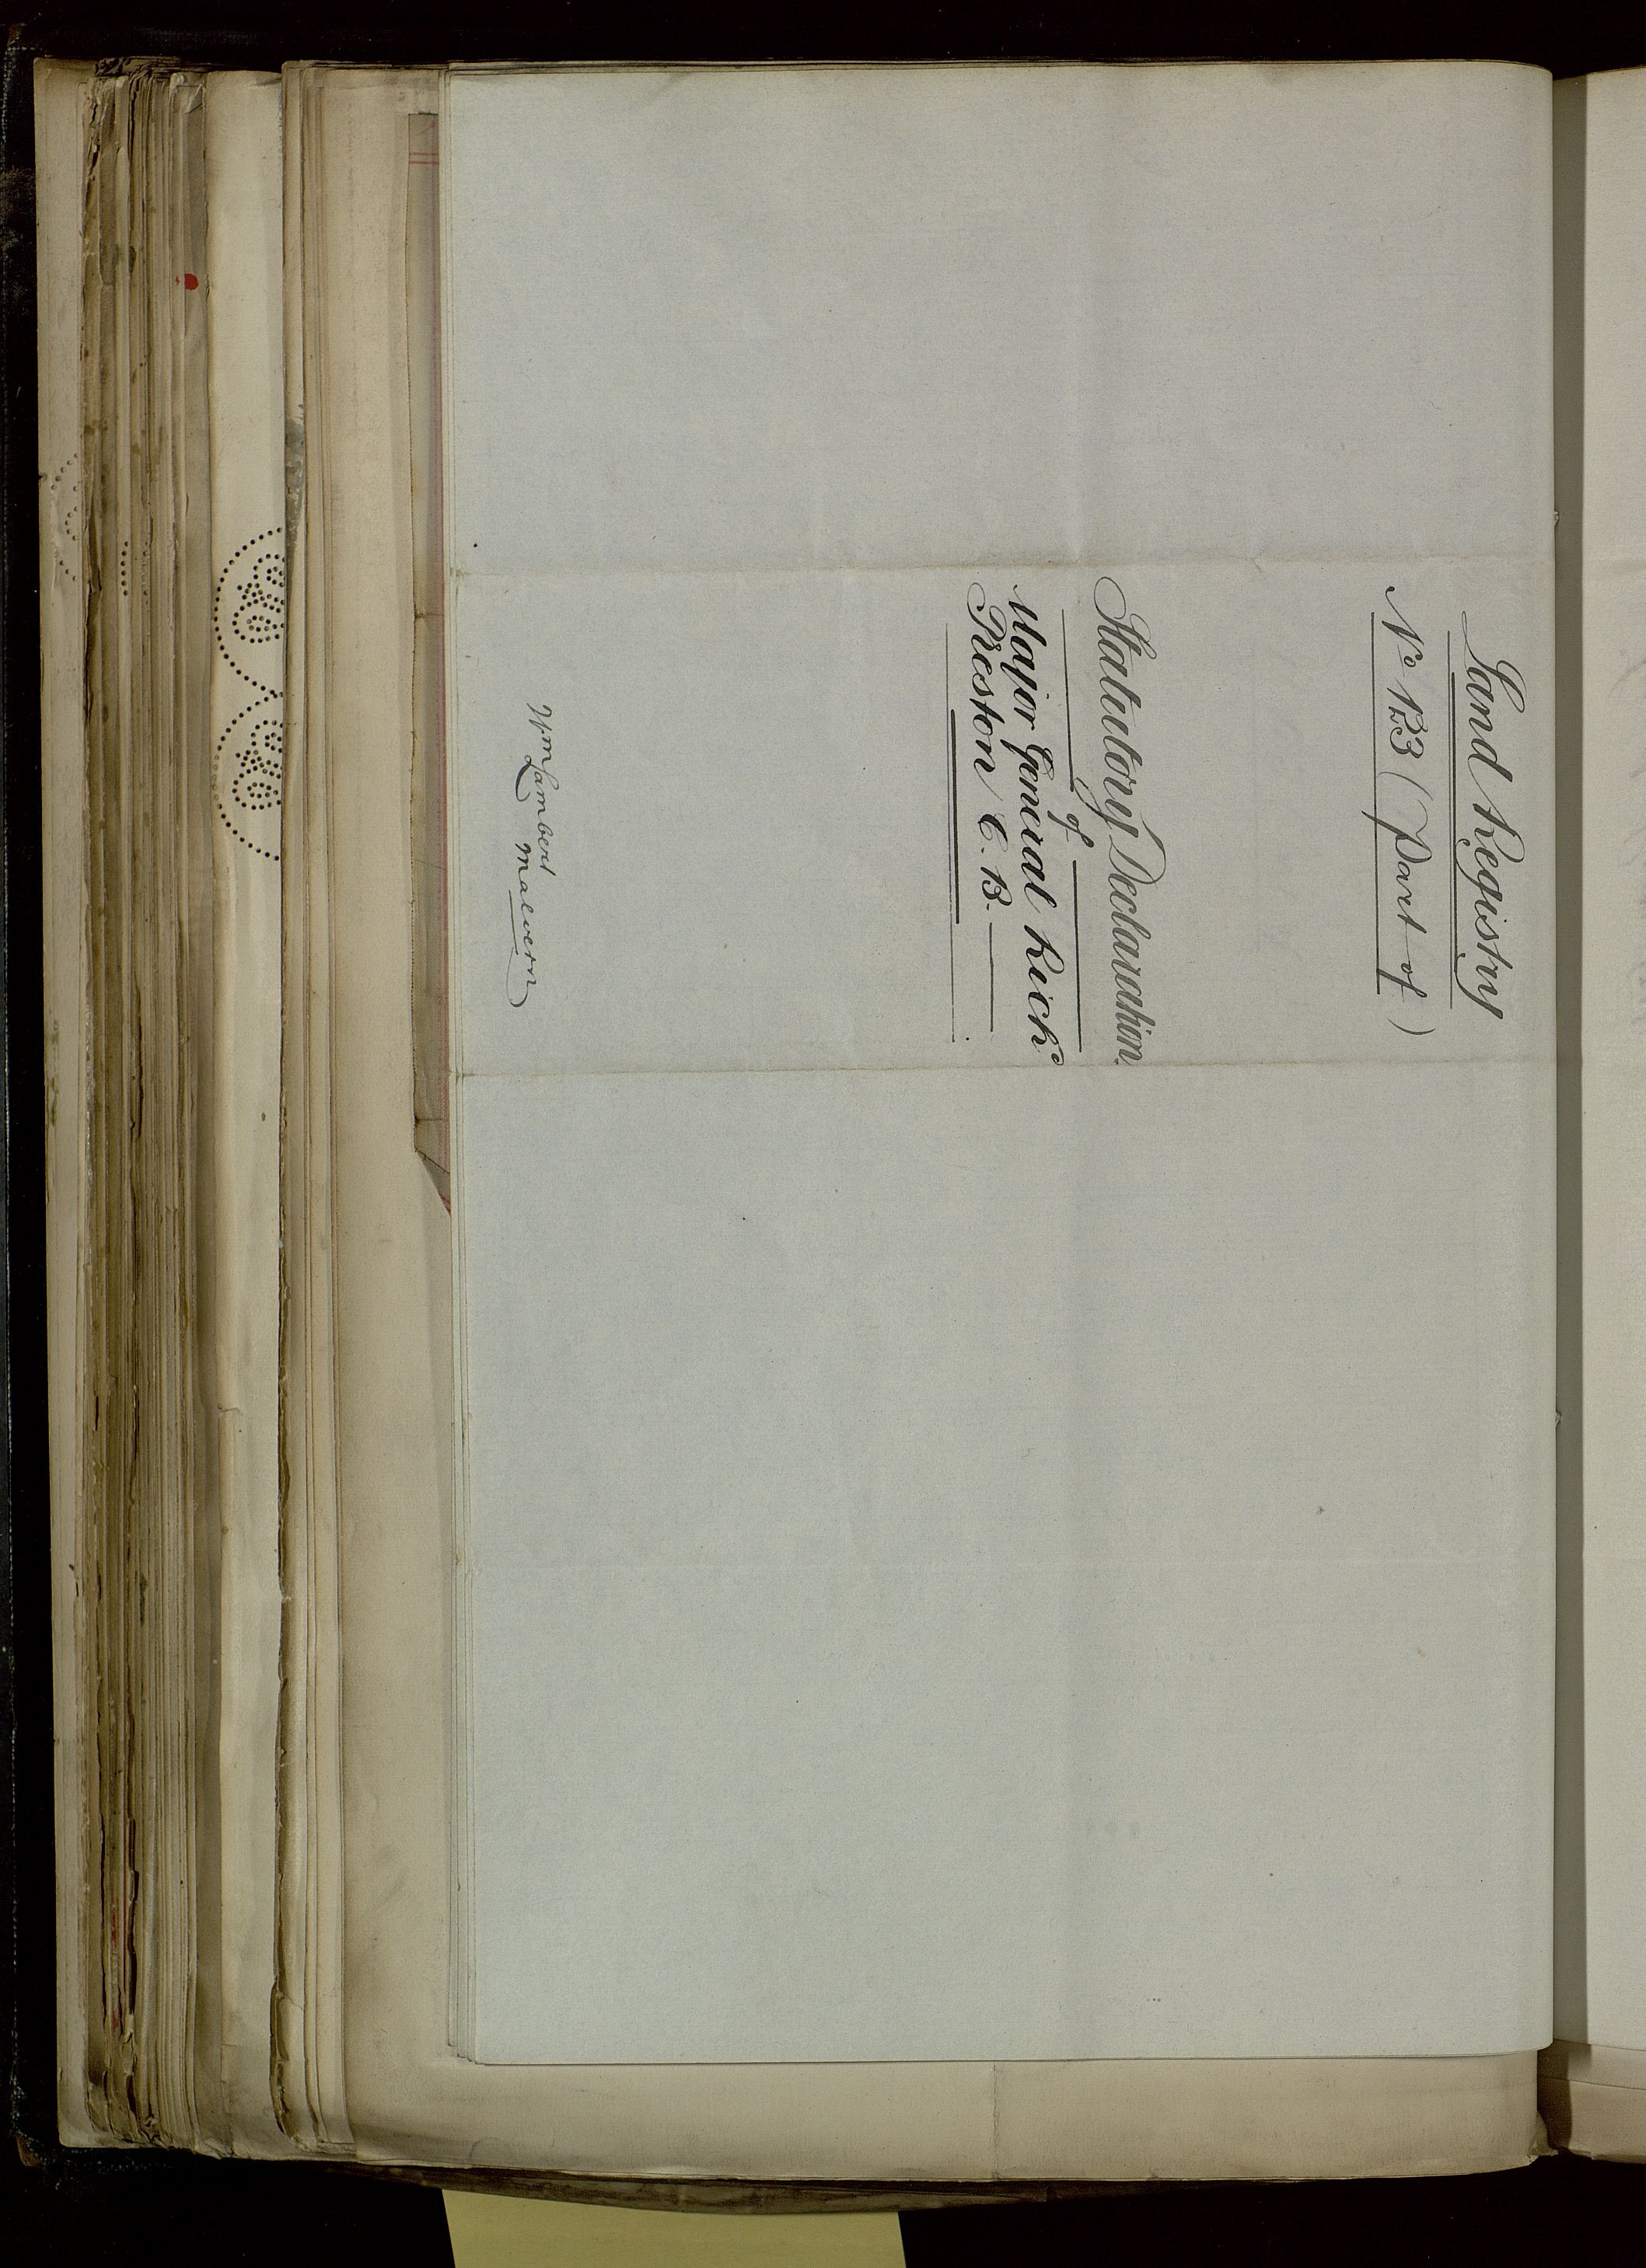 Land Registry
No 123 (Part of)
Statutory Declaration
of
Major General Richd
Preston C.B.
Wm Lambert
Malvern